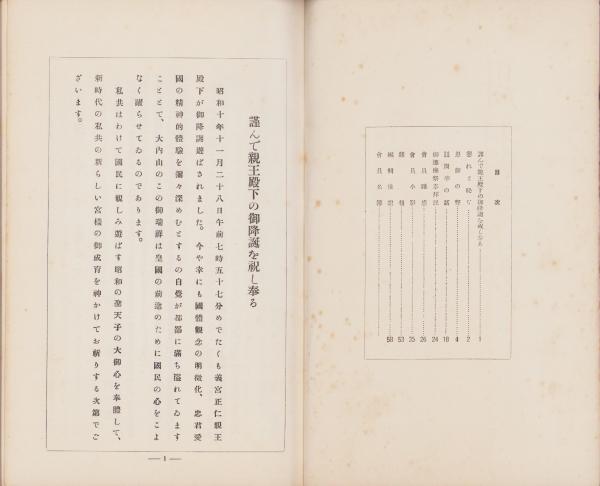 目次
謹んで親王殿下の御降誕を祝し奉る 1
2
4
18
24
26
會員小影 35
53
編輯後記 58
會員名簿
謹んで親王殿下の御降誕を祝し奉る
昭和十年十一月二十八日午前七時五十七分めでたくも義宮正仁親王
殿下が御降誕遊ばされました。今や幸にも國體觀念の明徵化、忠君愛
國の精神的體驗を彌々深めむとするの自覺が都鄙に滿ち溢れてゐます
こととて、大内山のこの御瑞祥は皇國の前途のために國民の心をこよ
なく躍らせてゐるのであります。
私共はわけて國民に親しみ遊ばす昭和の聖天子の大御心を奉體して、
新時代の私共の新らしい宮樣の御成育を神かけてお祈りする次第でご
ざいます。
— 1 —